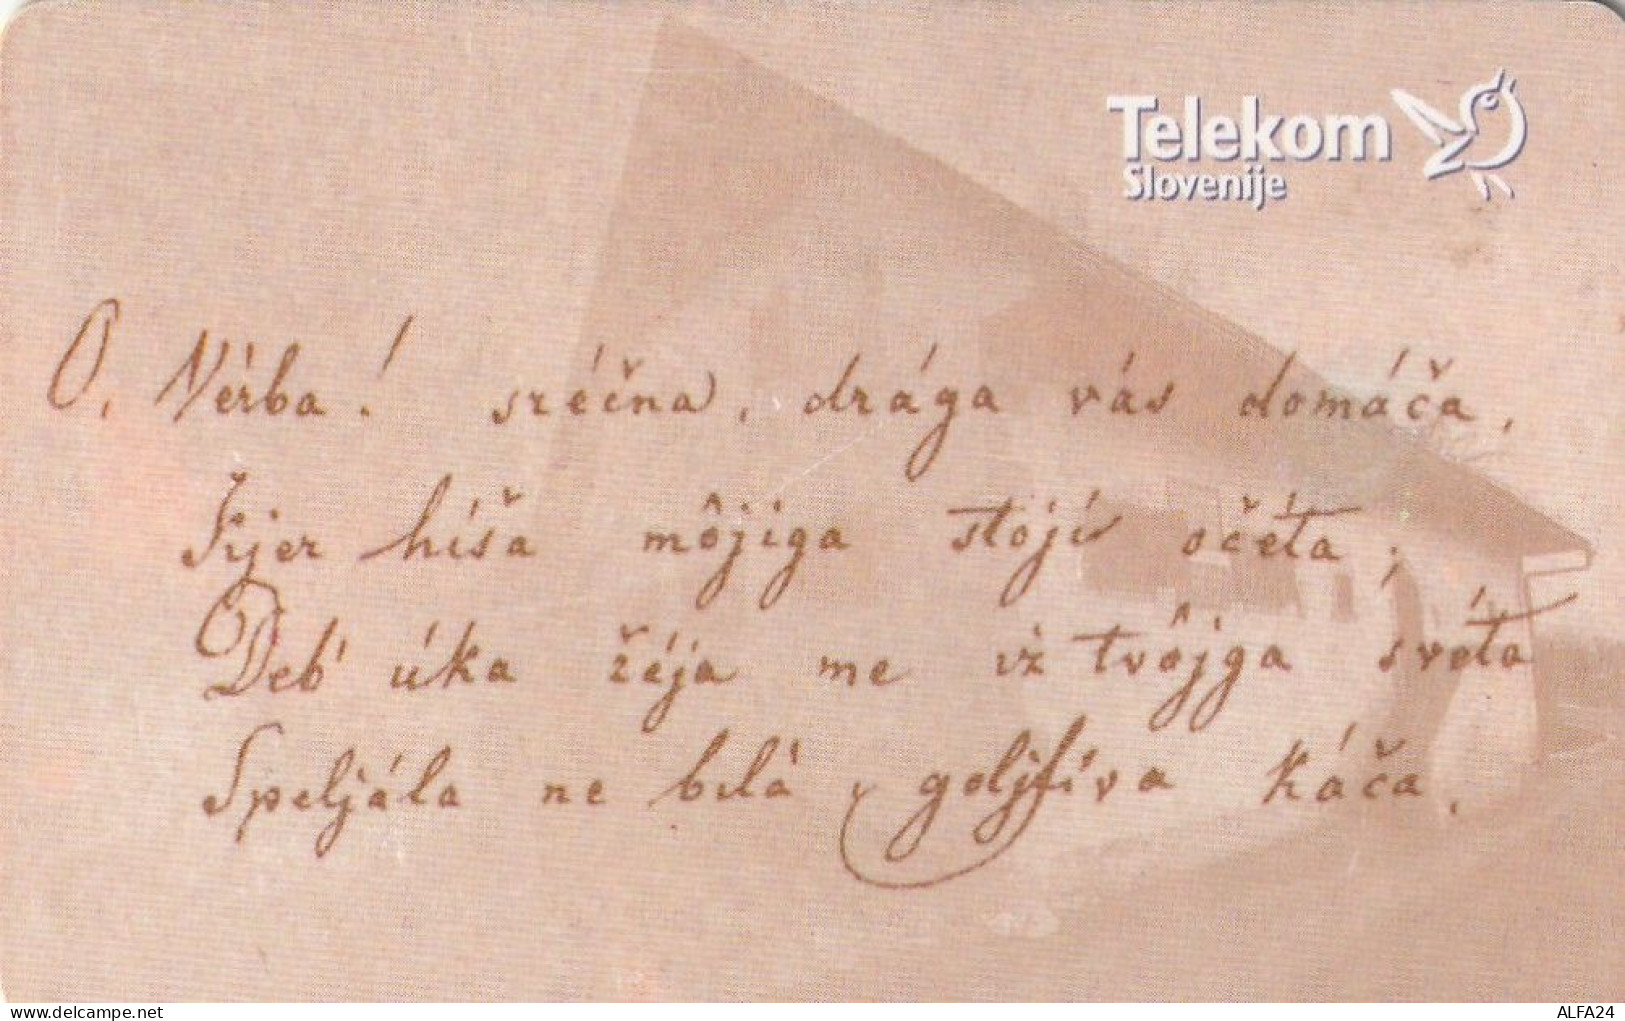 Telekom
Slovenije
O, Vérba! sréčna, drága vás domáča,
Kjer híša môjiga stojí očéta;
Deb' úka žéja me iz tvôjga svéta
Speljála ne bilà, goljfíva káča.
delcampe.net
ALFA24